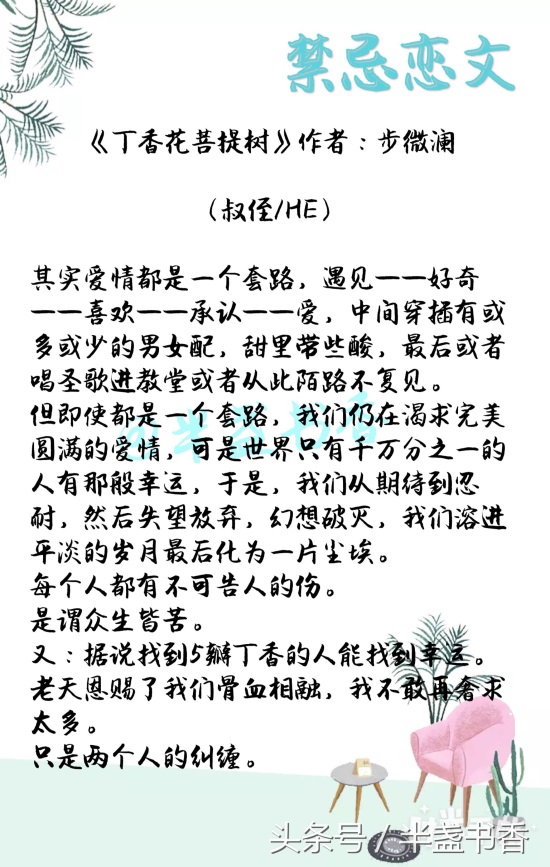 禁忌恋文
《丁香花菩提树》作者：步微澜
（叔侄/HE）
其实爱情都是一个套路，遇见——好奇
——喜欢——承认——爱，中间穿插有或
多或少的男女配，甜里带些酸，最后或者
唱圣歌进教堂或者从此陌路不复见。
但即使都是一个套路，我们仍在渴求完美
圆满的爱情，可是世界只有千万分之一的
人有那般幸运，于是，我们从期待到忍
耐，然后失望放弃，幻想破灭，我们溶进
平淡的岁月最后化为一片尘埃。
每个人都有不可告人的伤。
是谓众生皆苦。
又：据说找到5瓣丁香的人能找到幸运。
老天恩赐了我们骨血相融，我不敢再奢求
太多。
只是两个人的纠缠。
@半盏书香
头条号 / 半盏书香